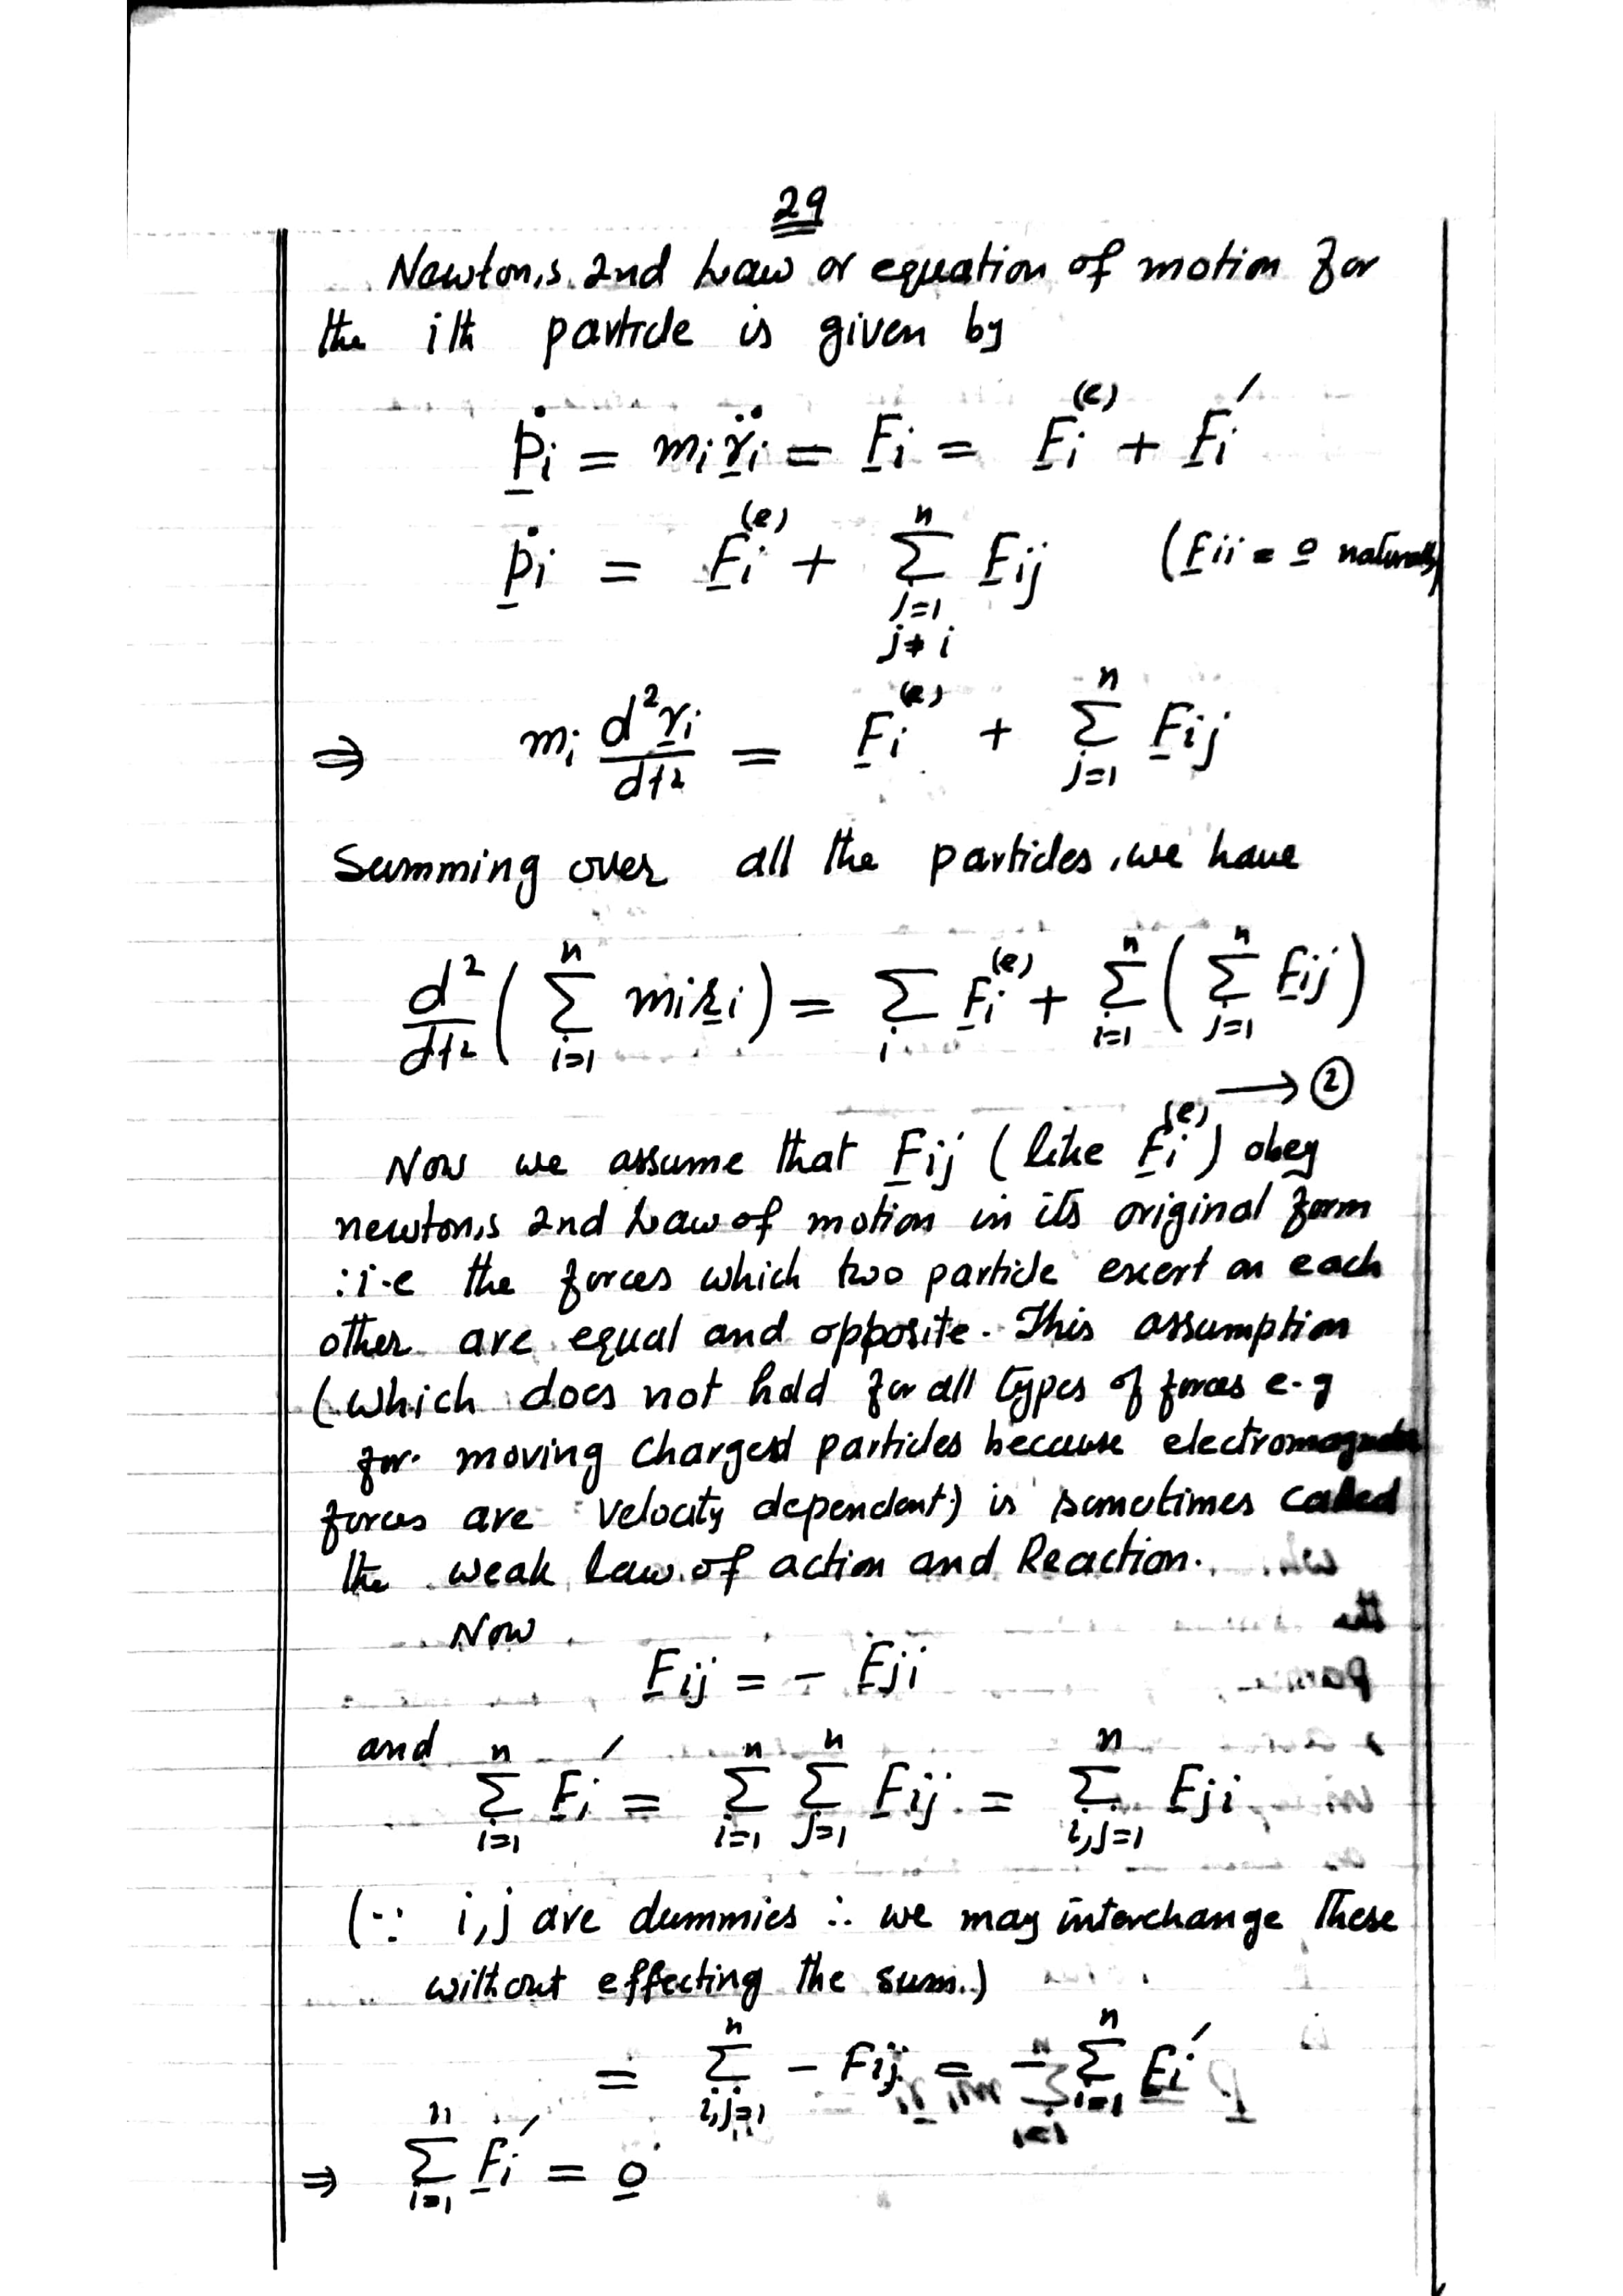 29
Newton,s 2nd Law or equation of motion for
the ith particle is given by
ṗi = mi r̈i = Fi = Fi(e) + Fi′
ṗi = Fi(e) + n∑j=1 j≠i Fij (Fii = 0 naturally)
⇒ mi d²ri/dt² = Fi(e) + n∑j=1 Fij
Summing over all the particles, we have
d²/dt² ( n∑i=1 miri ) = ∑i Fi(e) + n∑i=1 ( n∑j=1 Fij )
→ ②
Now we assume that Fij ( like Fi(e) ) obey
newton,s 2nd Law of motion in its original form
:i-e the forces which two particle exert on each
other are equal and opposite. This assumption
(which does not hold for all types of forces e-g
for moving charged particles because electromagnetic
forces are velocity dependent) is sometimes called
the weak law of action and Reaction.
Now
Fij = - Fji
and
n∑i=1 Fi′ = n∑i=1 n∑j=1 Fij = n∑i,j=1 Fji
(∵ i,j are dummies ∴ we may interchange these
without effecting the sum.)
= n∑i,j=1 - Fij = - n∑i=1 Fi′
⇒ n∑i=1 Fi′ = 0